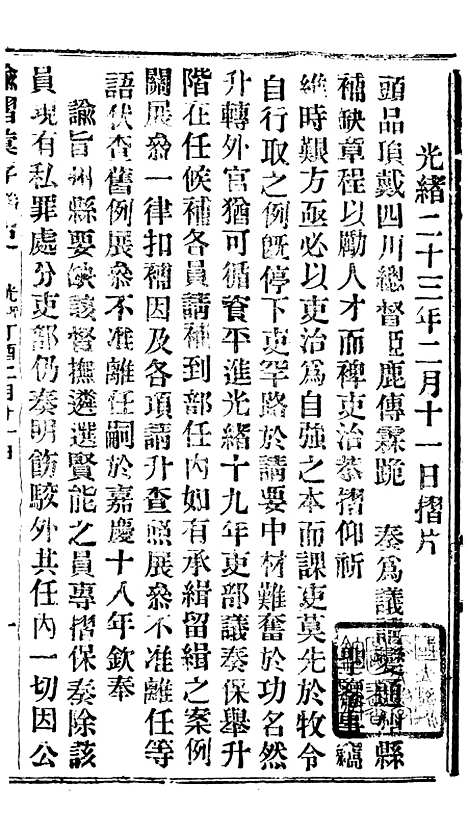 光緒二十三年二月十一日摺片
頭品頂戴四川總督臣鹿傳霖跪 奏爲議請變通州縣
補缺章程以勵人才而裨吏治恭摺仰祈
聖鑒事竊
維時艱方亟必以吏治爲自強之本而課吏莫先於牧令
自行取之例既停下吏罕路於請要中材難奮於功名然
升轉外官猶可循資平進光緒十九年吏部議奏保舉升
階在任候補各員請補到部任內如有承緝留緝之案例
關展參一律扣補因及各項請升查照展參不准離任等
語伏查舊例展參不准離任嗣於嘉慶十八年欽奉
諭旨州縣要缺該督撫遴選賢能之員專摺保奏除該
員現有私罪處分吏部仍奏明飭駁外其任內一切因公
諭摺彙存
光緒丁酉二月廿一日
一